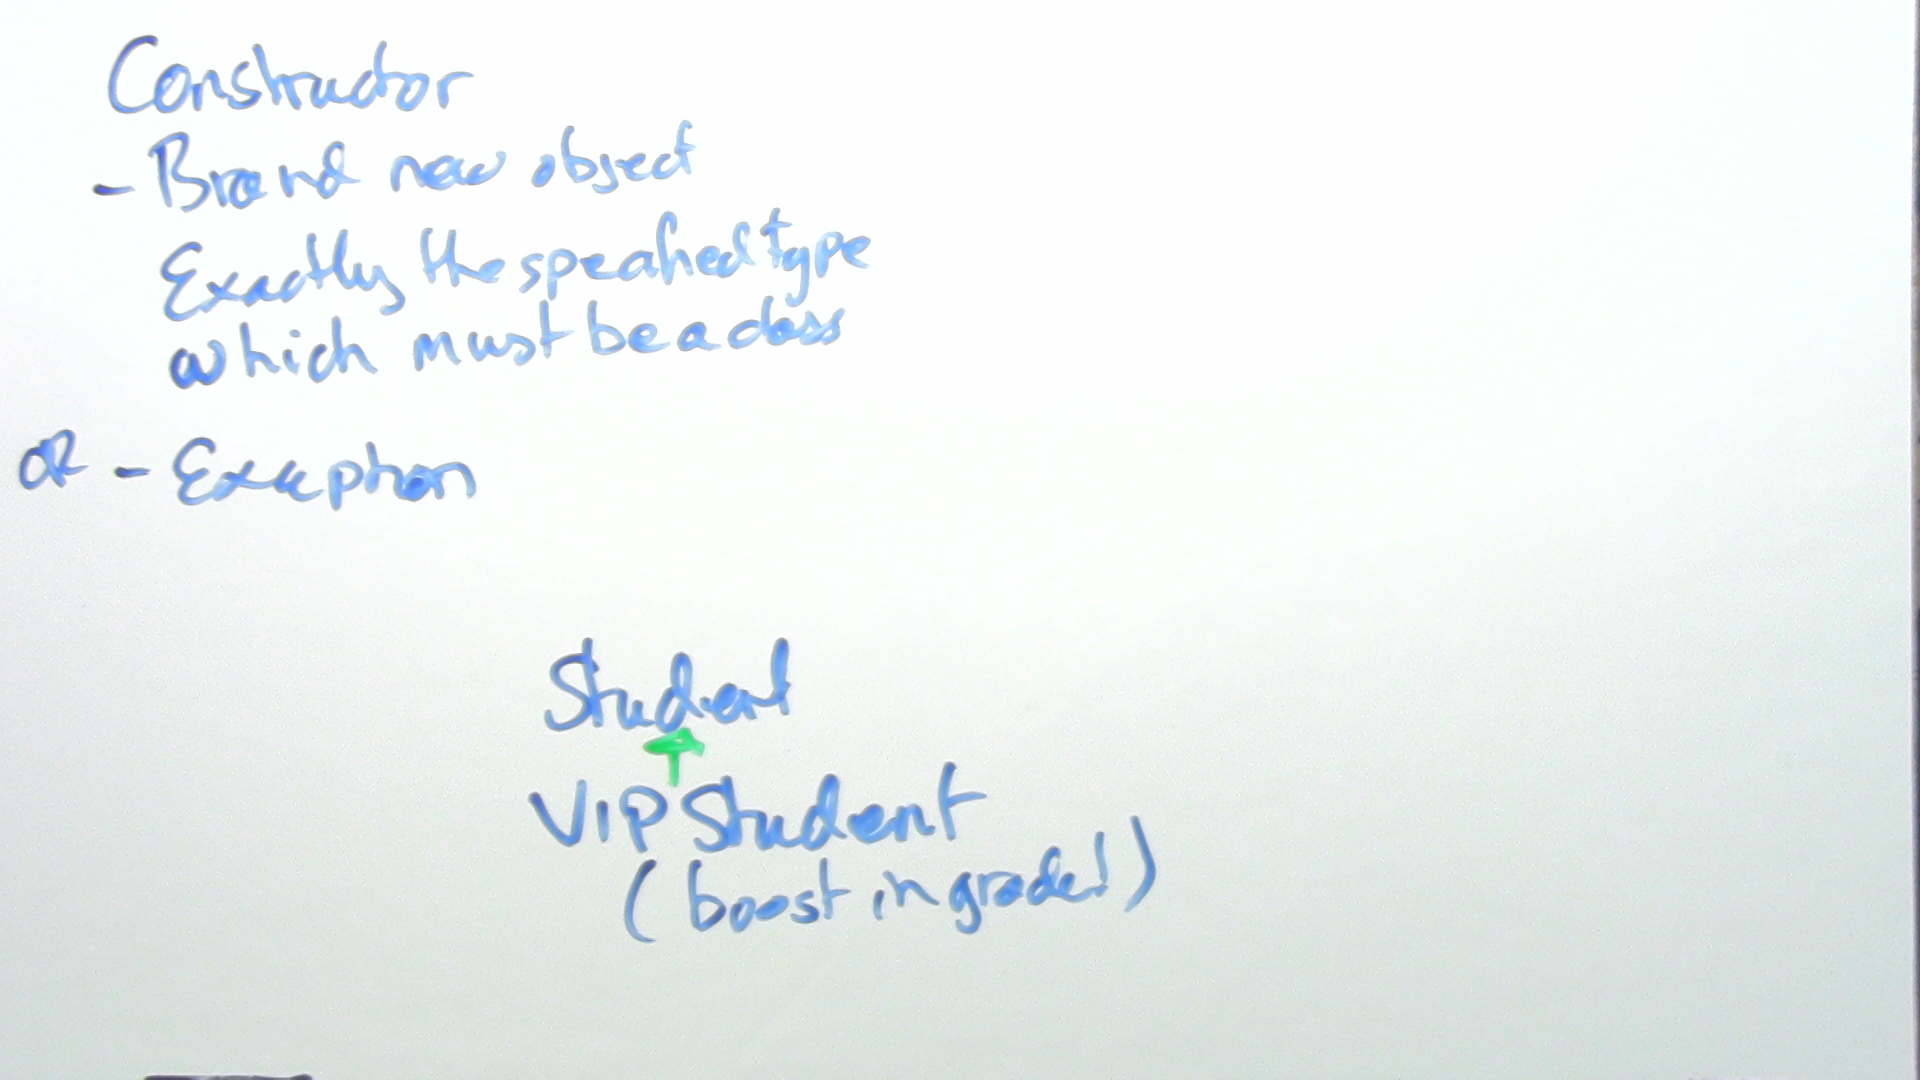 Constructor
- Brand new object
Exactly the specified type
which must be a class
OR - Exception
Student
VIP Student
(boost in grade!)